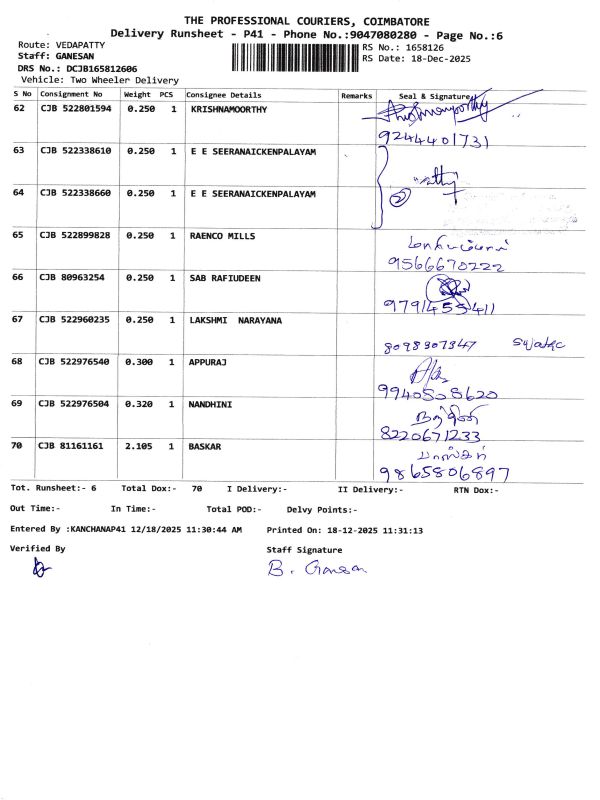 THE PROFESSIONAL COURIERS, COIMBATORE
Delivery Runsheet - P41 - Phone No.:9047080280 - Page No.:6
Route: VEDAPATTY
RS No.: 1658126
Staff: GANESAN
RS Date: 18-Dec-2025
DRS No.: DCJB165812606
Vehicle: Two Wheeler Delivery
S No Consignment No Weight PCS Consignee Details Remarks Seal & Signature
62 CJB 522801594 0.250 1 KRISHNAMOORTHY Krishnamoorthy
9244401731
63 CJB 522338610 0.250 1 E E SEERANAICKENPALAYAM
64 CJB 522338660 0.250 1 E E SEERANAICKENPALAYAM
2
65 CJB 522899828 0.250 1 RAENCO MILLS
9566670222
66 CJB 80963254 0.250 1 SAB RAFIUDEEN
9791455411
67 CJB 522960235 0.250 1 LAKSHMI NARAYANA
8098307347
68 CJB 522976540 0.300 1 APPURAJ
9940508620
69 CJB 522976504 0.320 1 NANDHINI நந்தினி
8220671233
70 CJB 81161161 2.105 1 BASKAR பாஸ்கர்
9865806897
Tot. Runsheet:- 6 Total Dox:- 70 I Delivery:- II Delivery:- RTN Dox:-
Out Time:- In Time:- Total POD:- Delvy Points:-
Entered By :KANCHANAP41 12/18/2025 11:30:44 AM Printed On: 18-12-2025 11:31:13
Verified By Staff Signature
B. Ganesan